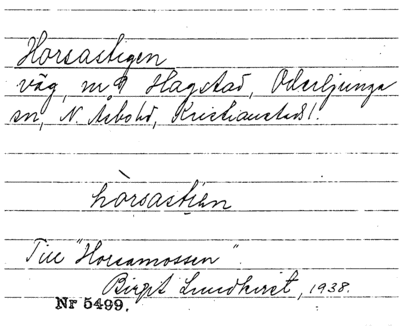 Horsastigen
väg, n. Hagstad, Oderljunga
sn, N. Åsbohd, Kristianstads l.
hòrsastịen
Till "Horsamossen".
Birgit Lundkvist, 1938.
Nr 5499.